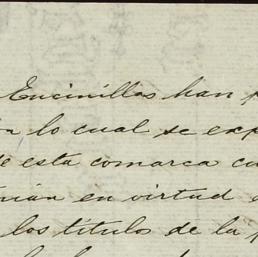 Encinillas han
lo cual se exp
de esta comarca cu
en virtud
los títulos de la p